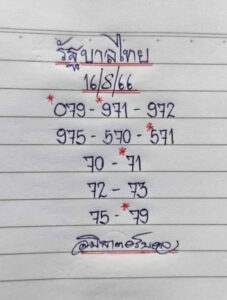 รัฐบาลไทย
16/8/66
*079 - *971 - 972
975 - 570 - *571
70 - *71
72 - 73
75 - *79